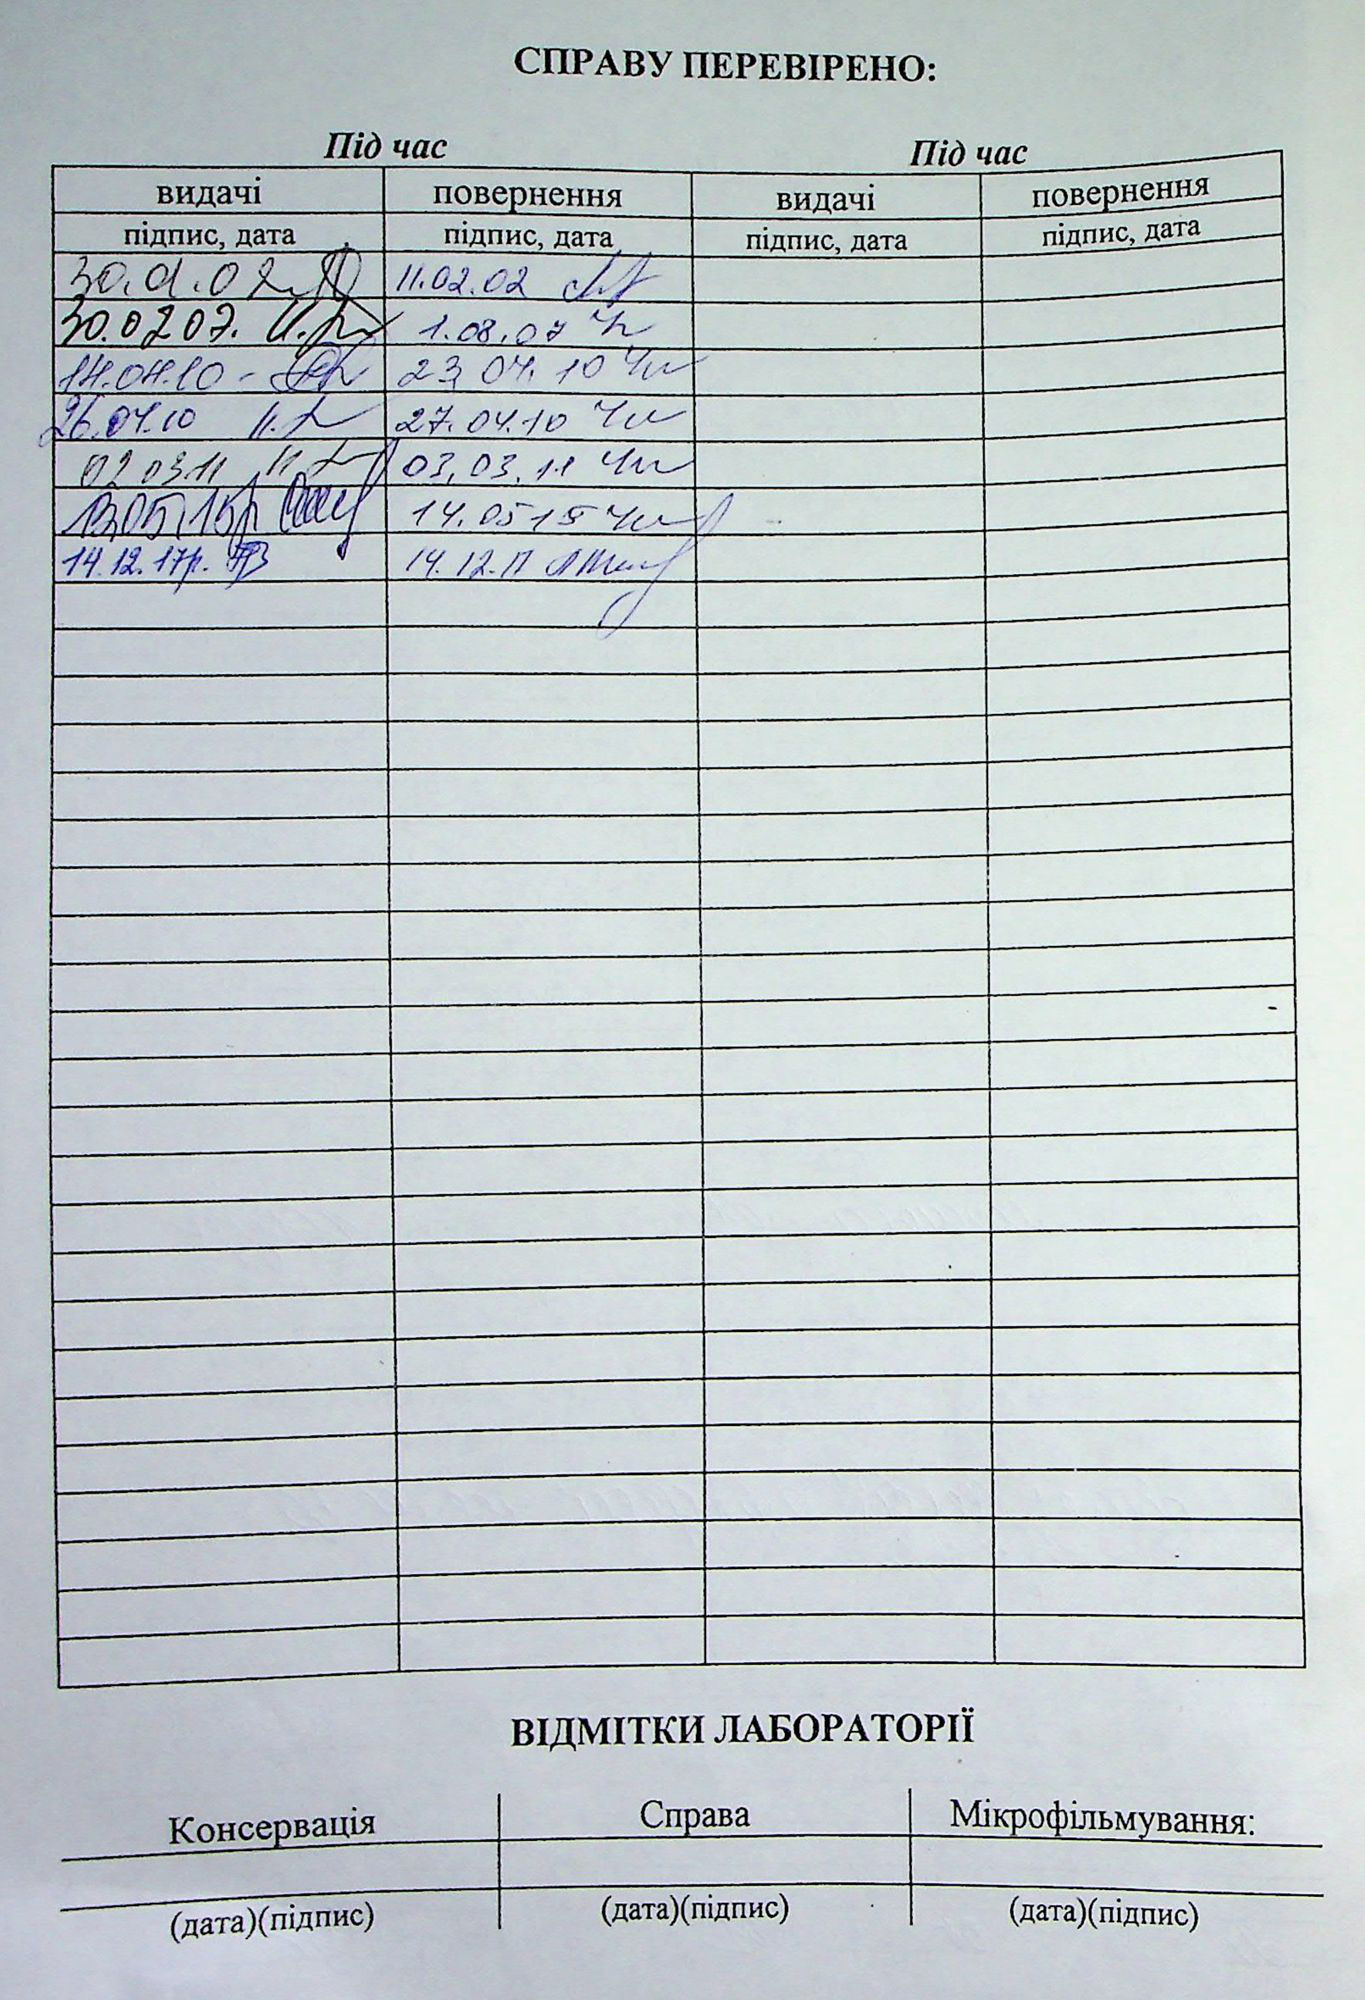 СПРАВУ ПЕРЕВІРЕНО:
Під час Під час
видачі повернення видачі повернення
підпис, дата підпис, дата підпис, дата підпис, дата
11.02.02
30.0207. 1.08.07
14.04.10 - 23 04. 10
26.04.10 27.04.10
02 03.11 03.03.11
13.05.15р 14.05 15
14.12.17р. 14.12.17
ВІДМІТКИ ЛАБОРАТОРІЇ
Консервація Справа Мікрофільмування:
(дата)(підпис) (дата)(підпис) (дата)(підпис)